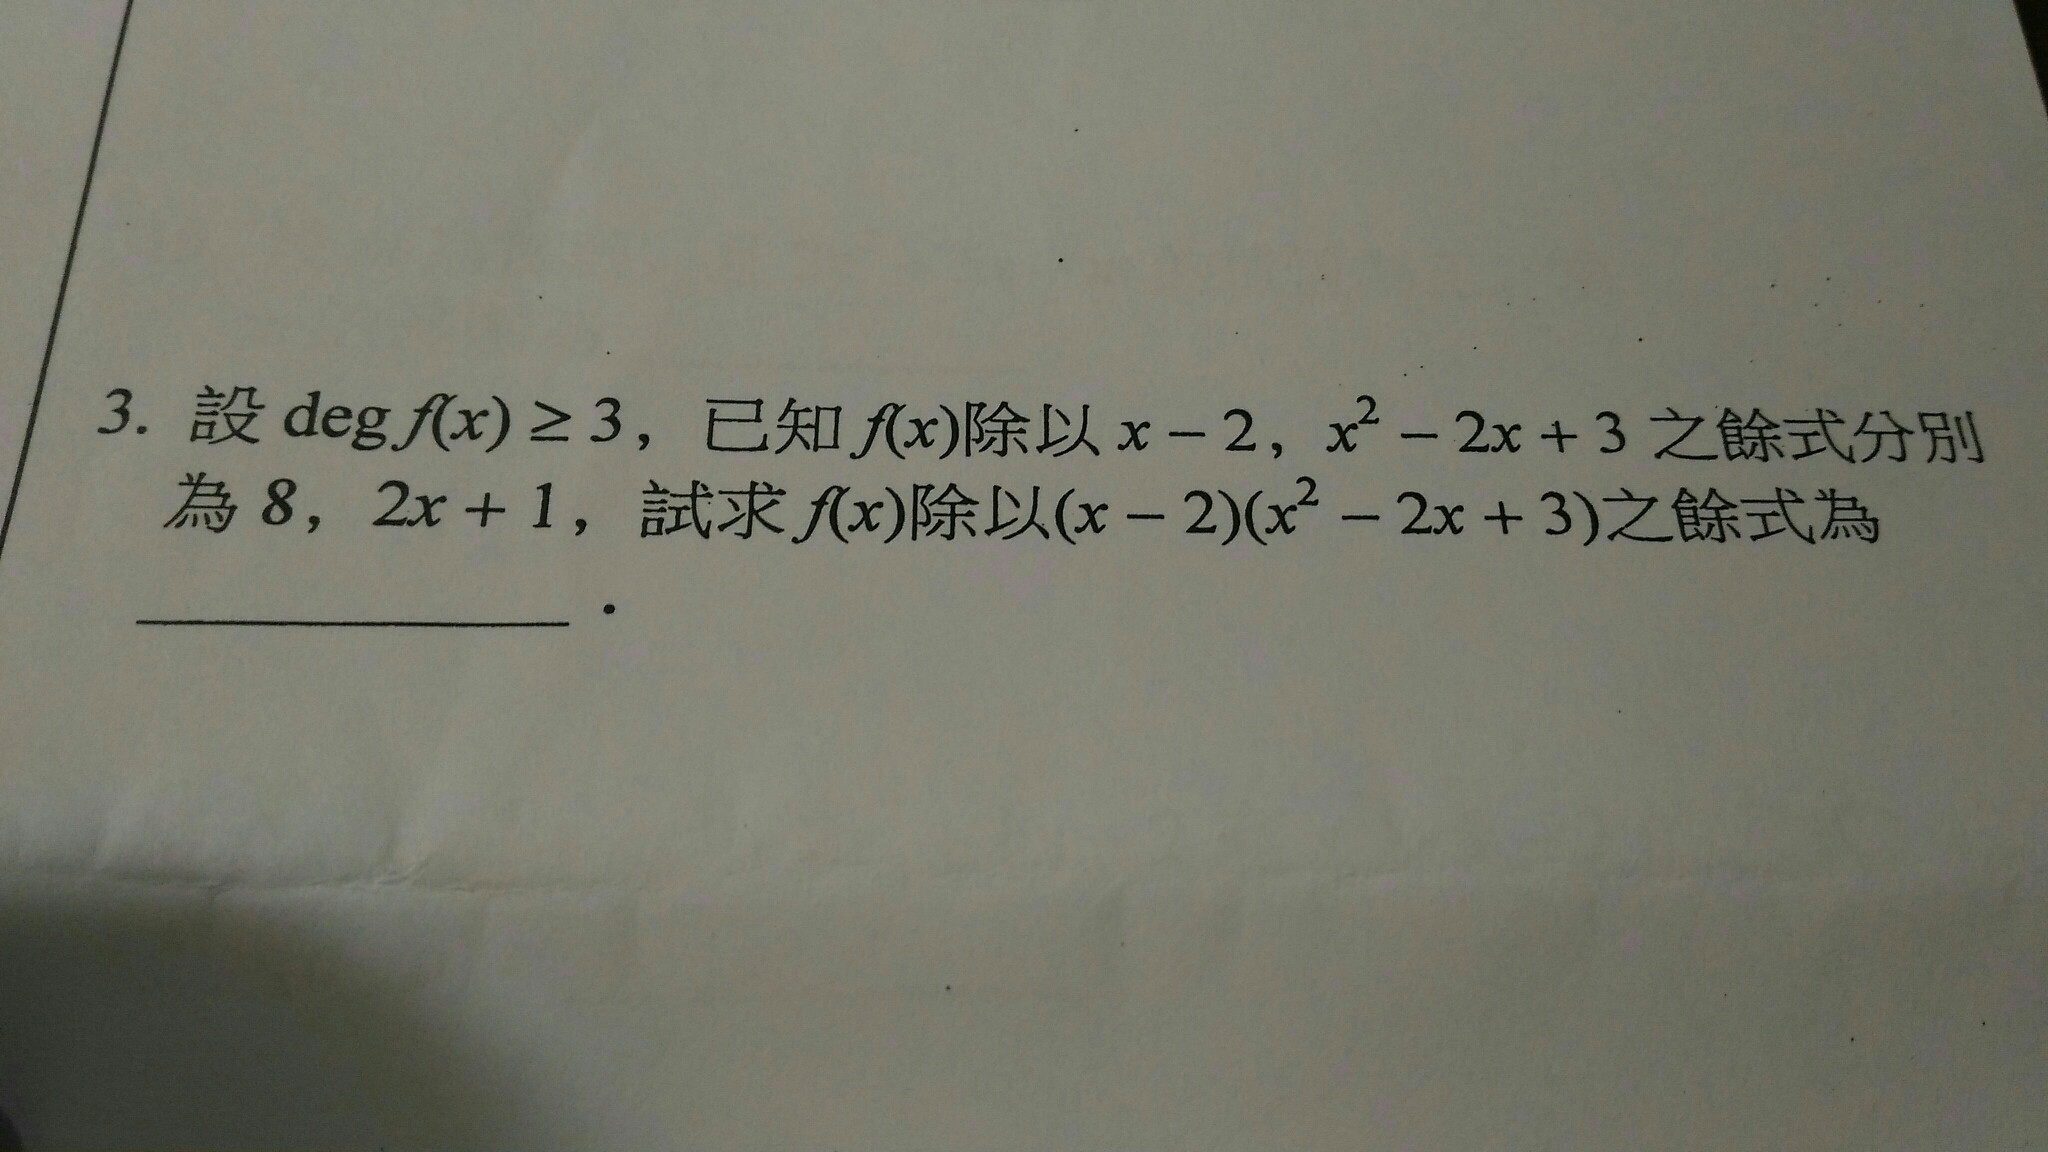 3. 設 deg f(x) ≥ 3，已知 f(x)除以 x − 2，x² − 2x + 3 之餘式分別
為 8，2x + 1，試求 f(x)除以(x − 2)(x² − 2x + 3)之餘式為
____________．